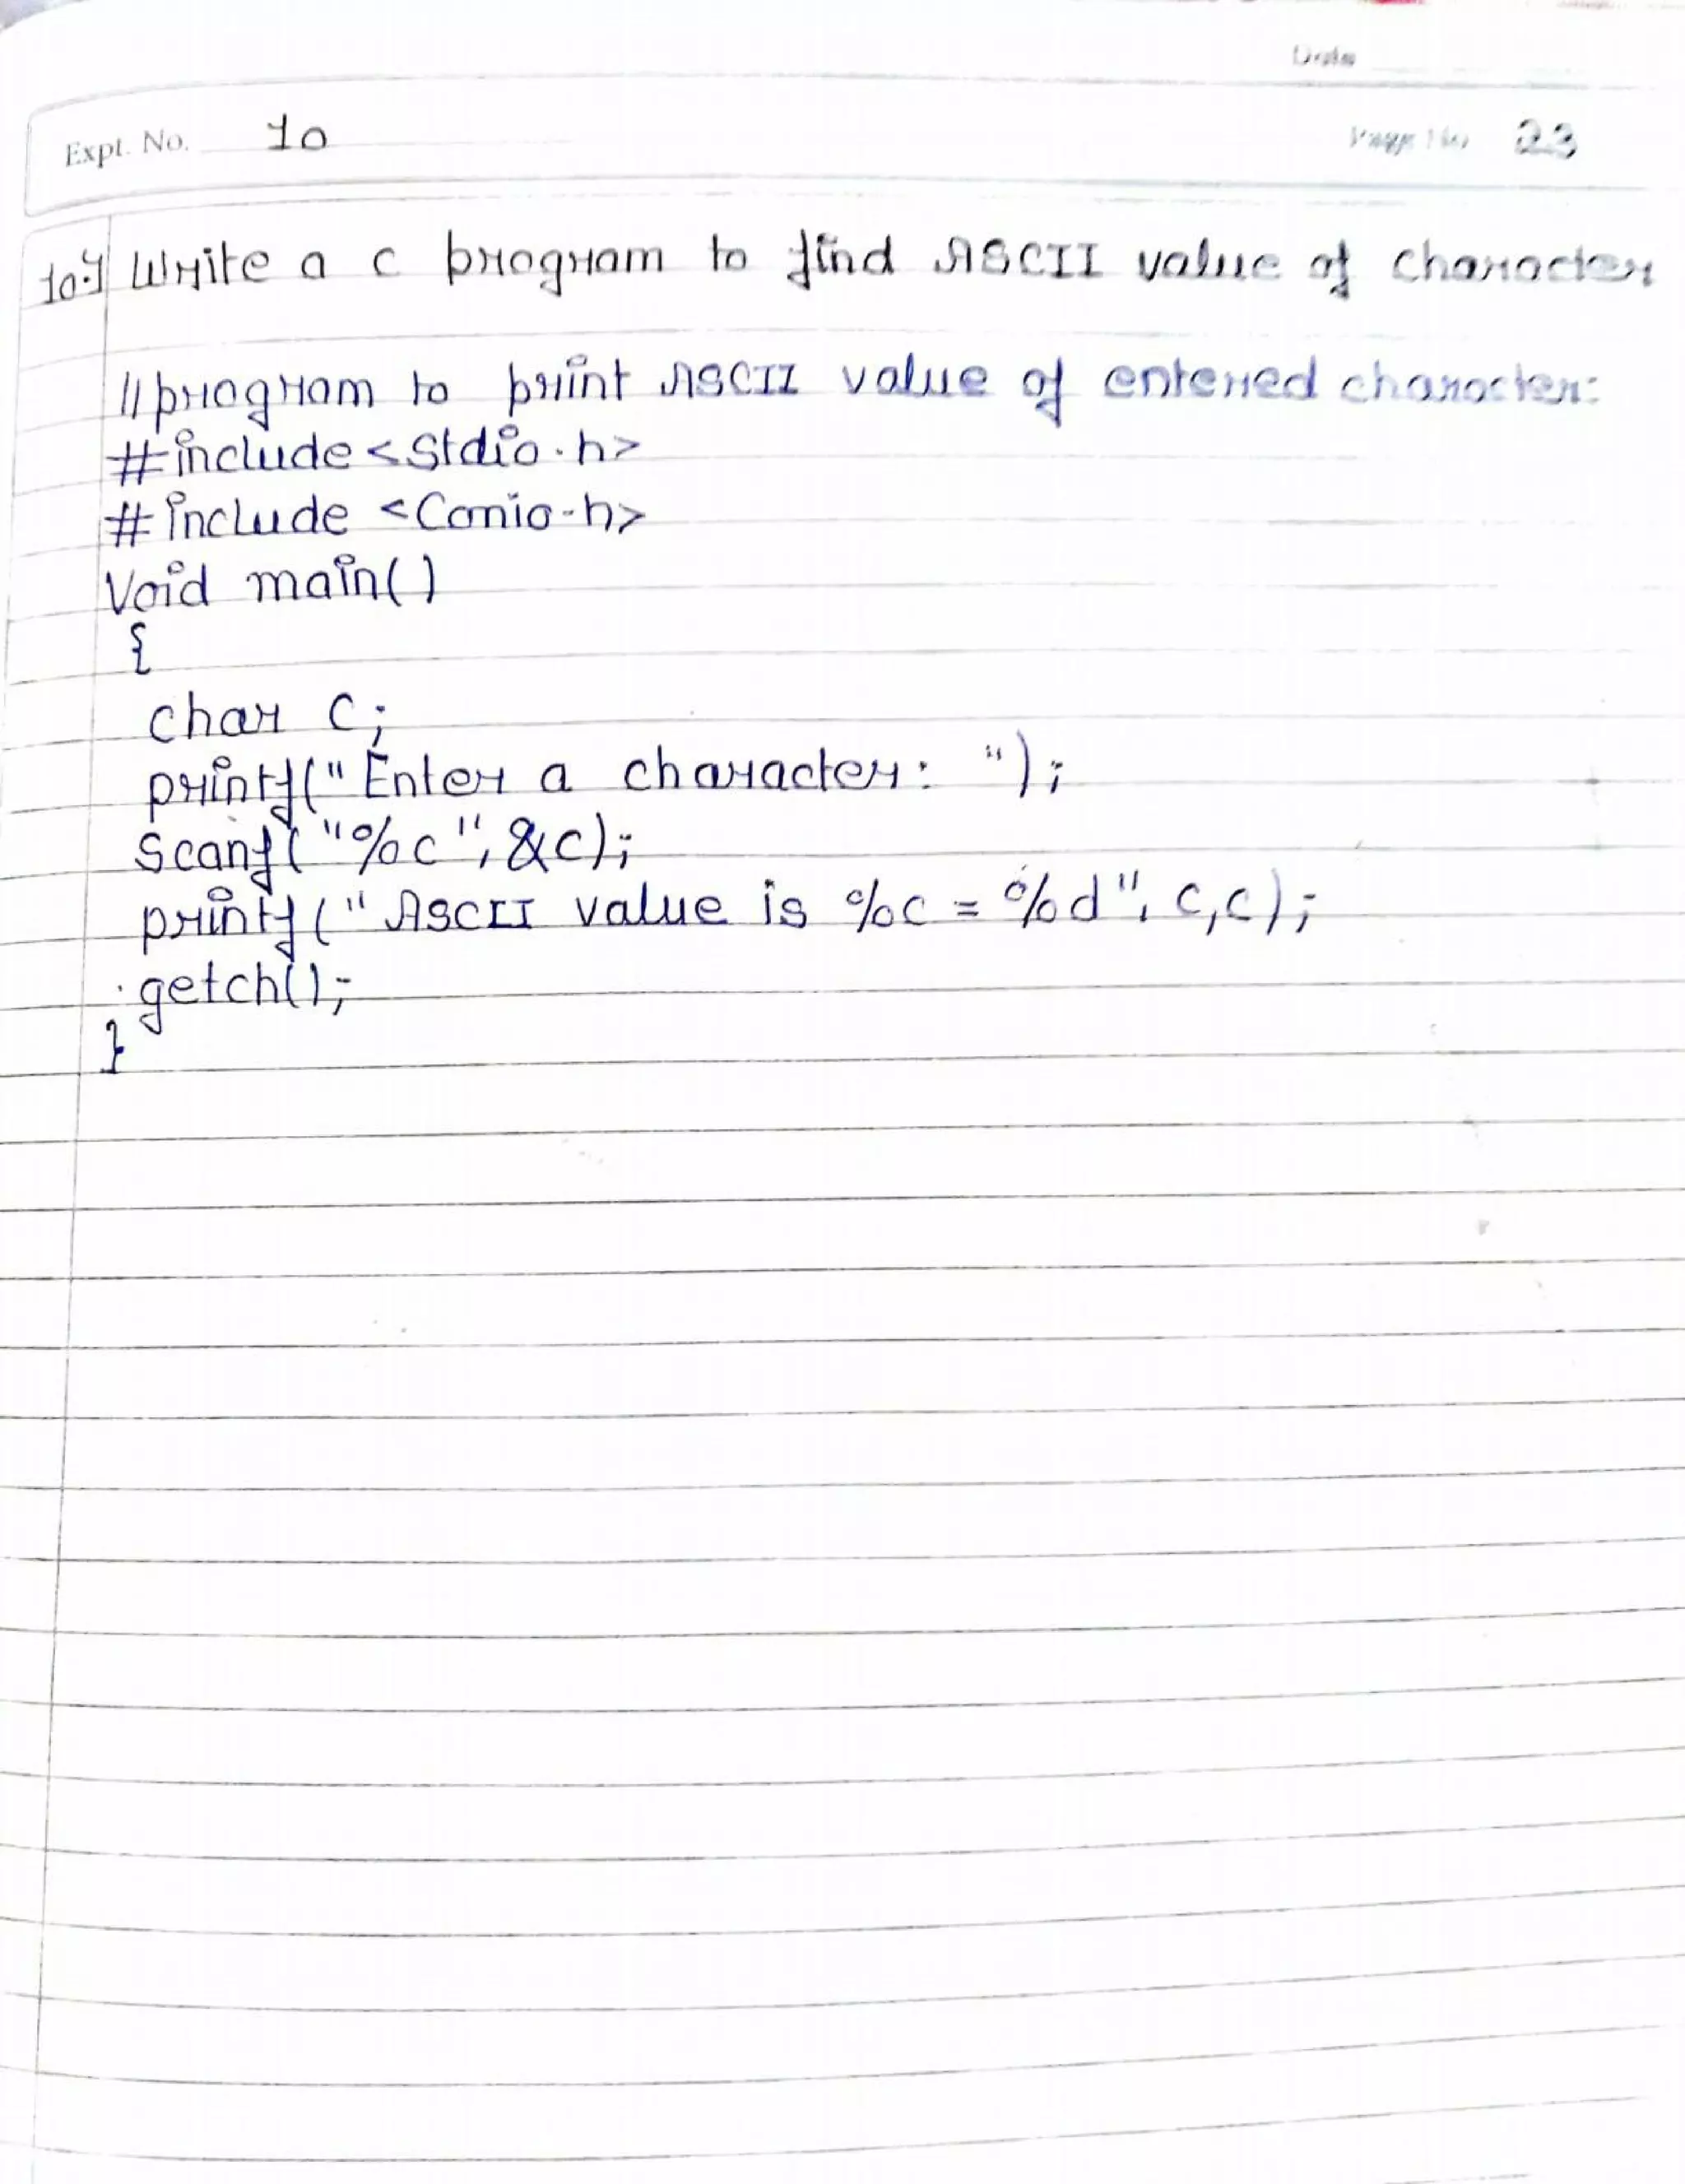 Date
Expt. No. 10
Page No. 23
10.) Write a c program to find ASCII value of character
//program to print ASCII value of entered character:
#include <Stdio.h>
#include <Conio.h>
Void main()
{
char c;
printf("Enter a character: ");
Scanf("%c", &c);
printf("ASCII value is %c = %d", c,c);
getch();
}